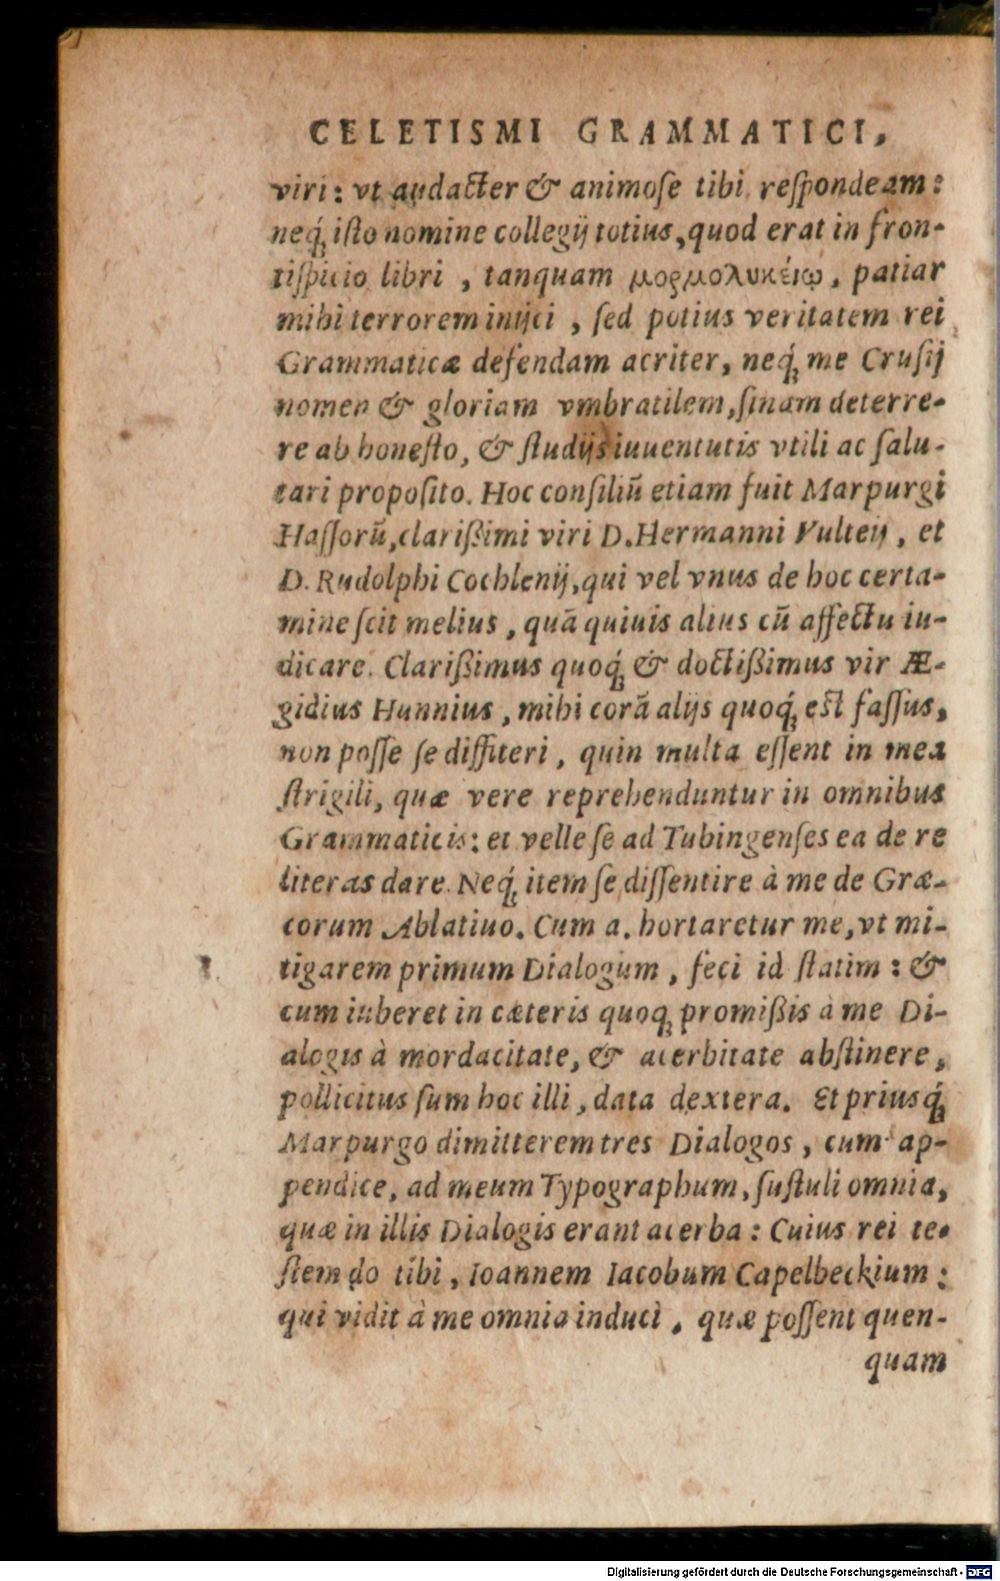 CELETISMI GRAMMATICI,
viri: vt audacter & animoſe tibi reſpondeam:
neq́; iſto nomine collegij totius, quod erat in fron-
tiſpicio libri , tanquam μορμολυκείῳ, patiar
mihi terrorem inijci , ſed potius veritatem rei
Grammaticæ defendam acriter, neq́; me Cruſij
nomen & gloriam vmbratilem, ſinam deterre-
re ab honeſto, & ſtudijs iuuentutis vtili ac ſalu-
tari propoſito. Hoc conſiliũ etiam fuit Marpurgi
Haſſorũ, clarißimi viri D. Hermanni Vulteij , et
D. Rudolphi Cochlenij, qui vel vnus de hoc certa-
mine ſcit melius , quã quiuis alius cũ affectu iu-
dicare. Clarißimus quoq́; & doctißimus vir Æ-
gidius Hunnius , mihi corã alijs quoq́; eſt faſſus,
non poſſe ſe diffiteri , quin multa eſſent in mea
ſtrigili, quæ vere reprehenduntur in omnibus
Grammaticis: et velle ſe ad Tubingenſes ea de re
literas dare. Neq́; item ſe diſſentire à me de Græ-
corum Ablatiuo. Cum a. hortaretur me, vt mi-
tigarem primum Dialogum , feci id ſtatim : &
cum iuberet in cæteris quoq; promißis à me Di-
alogis à mordacitate, & acerbitate abſtinere,
pollicitus ſum hoc illi , data dextera. Et priusq́;
Marpurgo dimitterem tres Dialogos , cum ap-
pendice, ad meum Typographum, ſuſtuli omnia,
quæ in illis Dialogis erant acerba : Cuius rei te-
ſtem do tibi , Ioannem Iacobum Capelbeckium :
qui vidit à me omnia induci , quæ poſſent quen-
quam
Digitalisierung gefördert durch die Deutsche Forschungsgemeinschaft - DFG